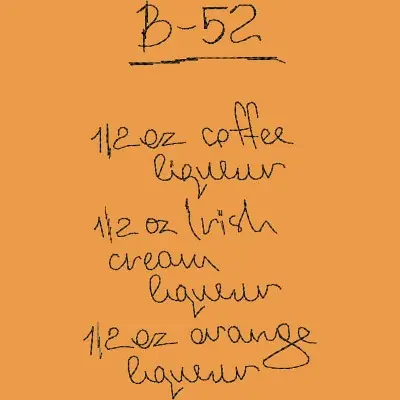 B-52
1/2 oz coffee
liqueur
1/2 oz Irish
cream
liqueur
1/2 oz orange
liqueur